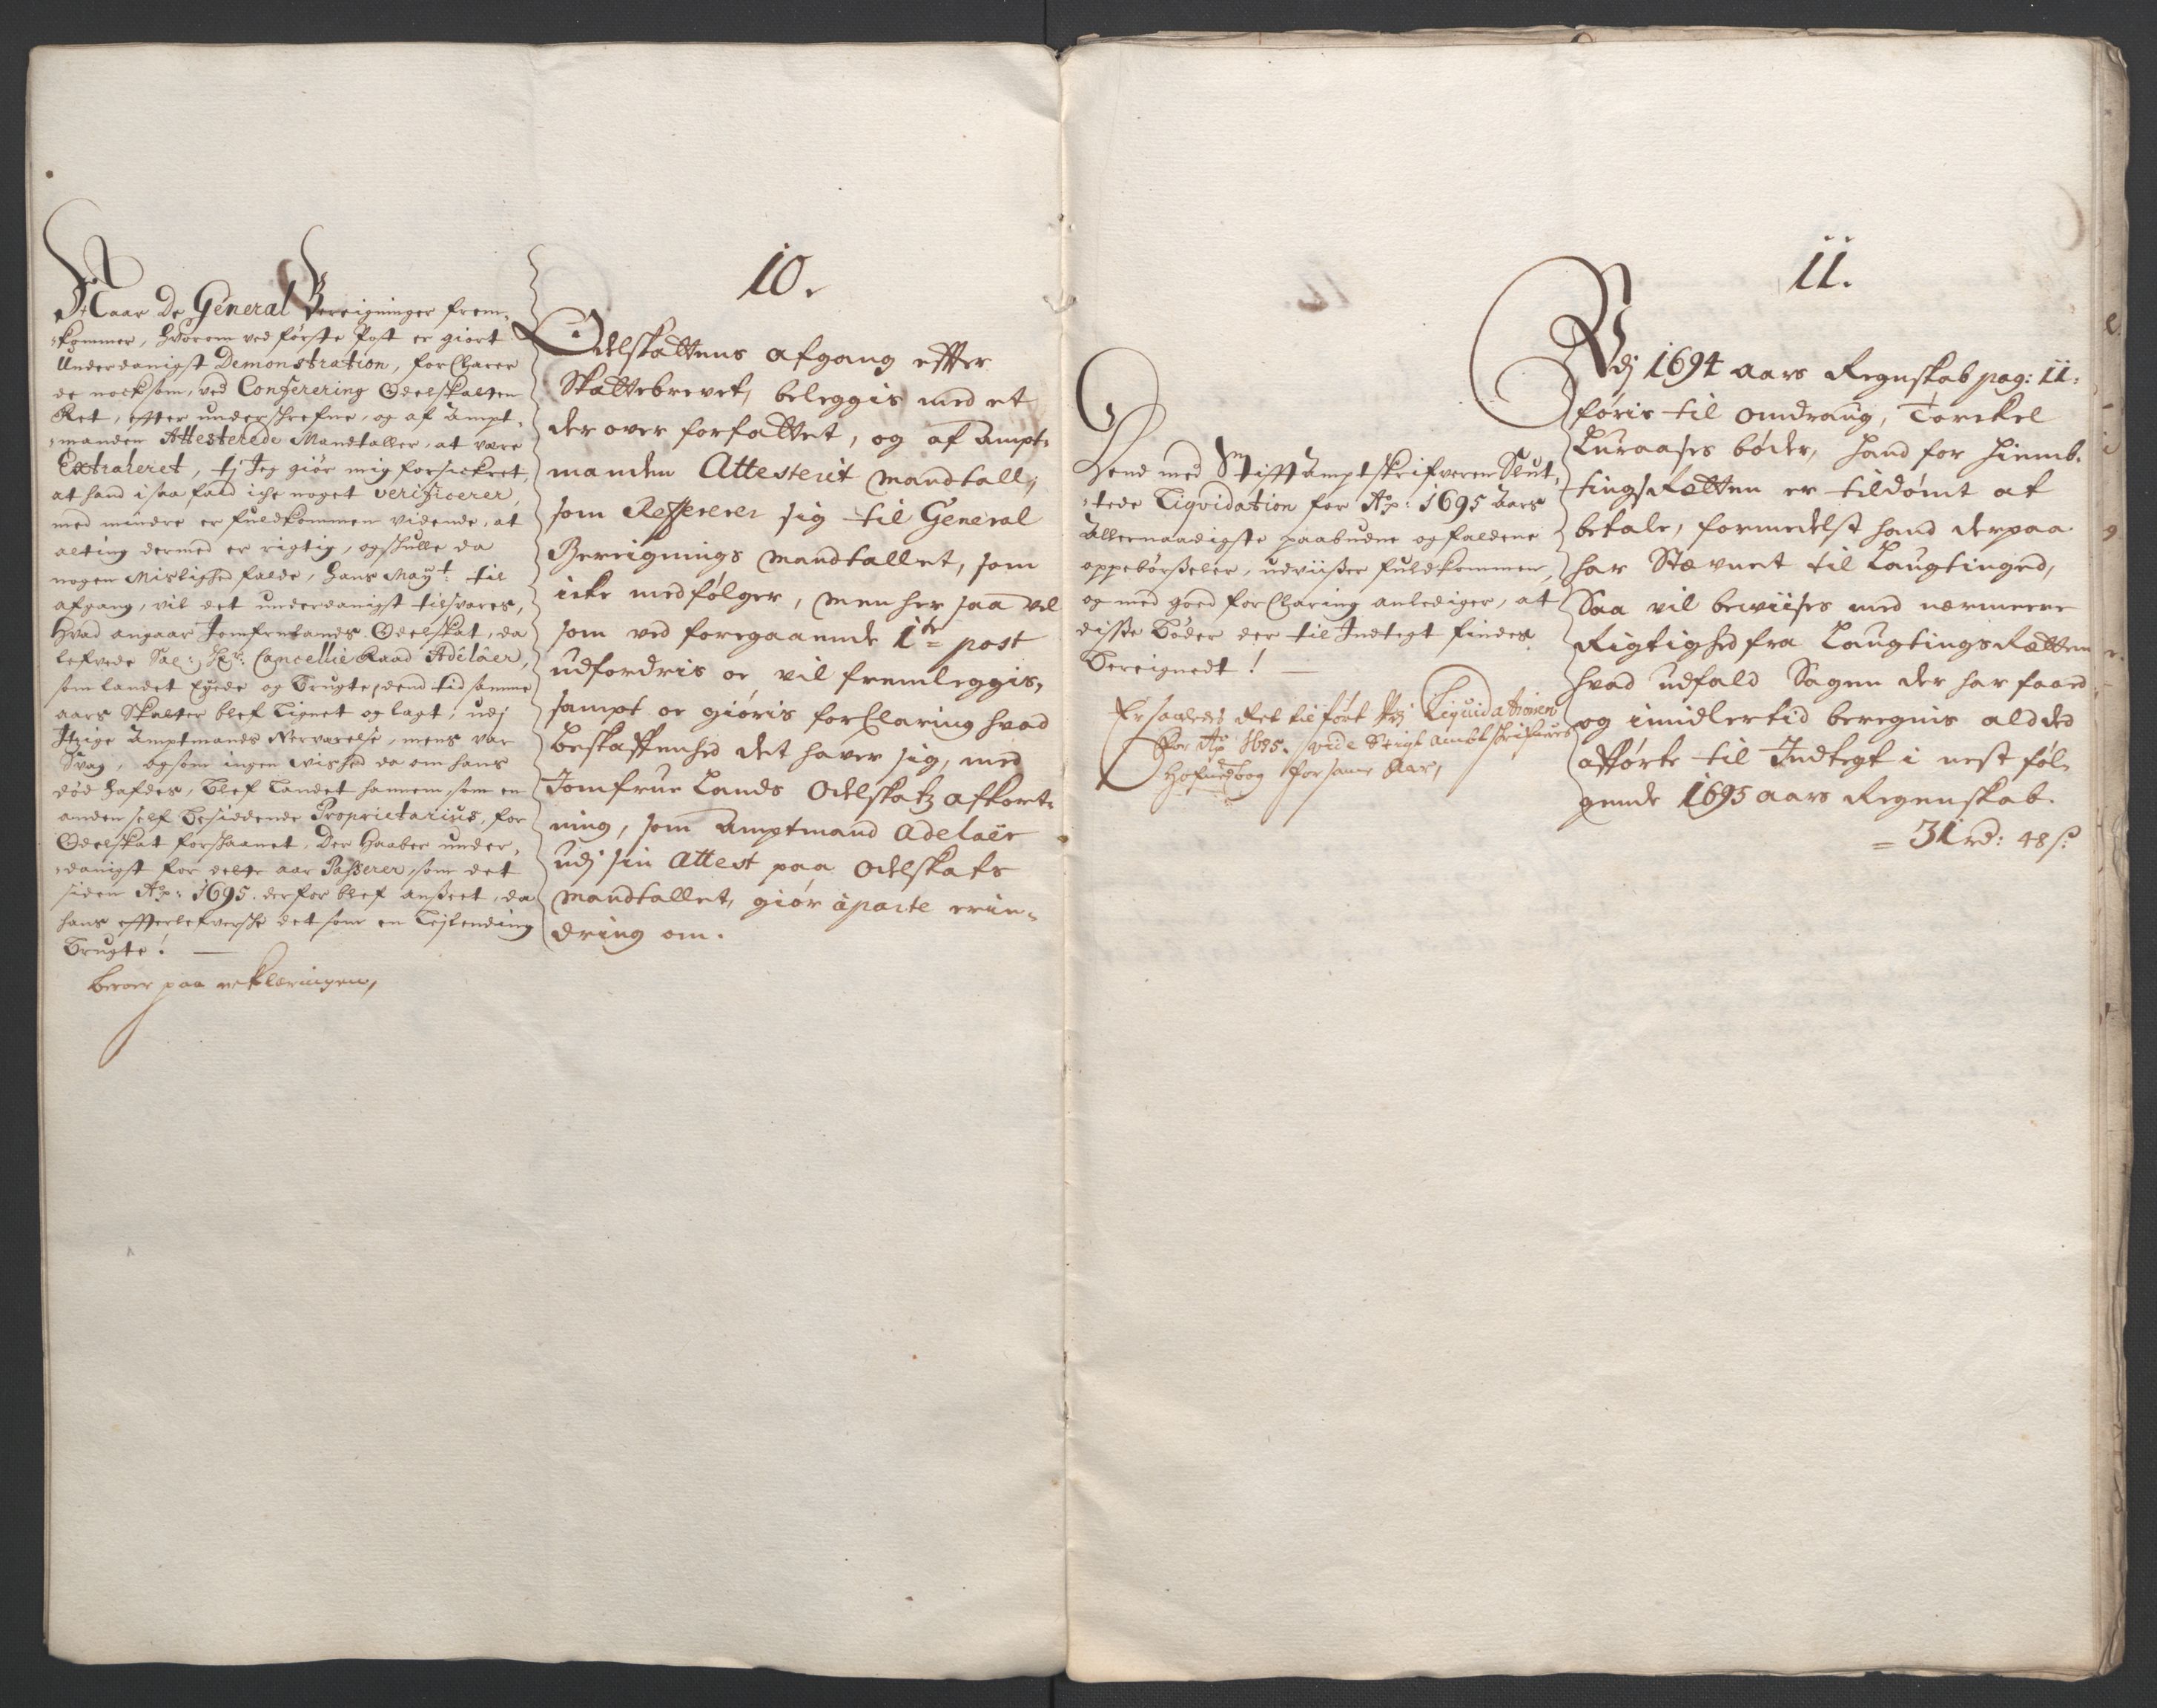 Naar De General Bereigninger frem-
kommer, hvorom ved første Post er giort
Underdanigst Demonstration, forclarer
de nocksom, ved Conferering Odelskatten
Ret, effter underschrefne, og af Ampt-
manden Attesterede Mandtaller, at være
Extraheret, tj Jeg giør mig forsickret,
at hand i saa fald iche noget verificerer,
med mindre er fuldkommen vidende, at
alting dermed er rigtig, og skulle da
nogen Mislighed falde, Hans Mayt: til
afgang, vil det underdanigst tilsvares,
Hvad angaar Jomfrulands Odelskat, da
lefvede Sal: Hr: Cancellie Raad Adelaer,
som landet Eyede og Brugte, dend tid samme
aars Skatter blef Lignet og lagt, udj
Itzige Amptmands Nerværelse, mens var
Svag, og som ingen vished da om hans
død hafdes, blef Landet hannem som en
anden self besiddende Proprietarius, for
Odelskat forskaanet, Der haaber under-
danigst for dette aar Passerer, som det
siden Ao: 1695. derfor blef ansleet, da
hans effterlefversche det som en Lejlending
Brugte! —
beroer paa erklæringen,
10.
Odelskattens afgang effter
Skattebrevet, beleggis med et
derover forfattet, og af Ampt-
manden Attesterit Mandtall,
som Refererer sig til General
Bereignings Mandtallet, som
icke medfølger, men her saa vel
som ved foregaaende 1te post
udfordris oc vil fremleggis,
sampt oc giøris forClaring hvad
beskaffenhed det haver sig, med
Jomfrue Lands Odelskatz afkort-
ning, som Amptmand Adelaer
udj sin Attest paa Odelskats
Mandtallet, giør aparte erin-
dring om.
Dend med Stifftamptskrifveren Slut-
tede Liqvidation for Ao: 1695 Aars
Allernaadigste paabudne og faldene
oppebørsseler, udviisser fuldkommen,
og med goed forClaring anlediger, at
disse Bøder der til Indtegt findes
Bereignedt! —
Er saaledes Ret tilført udj Liquidationen
for Ao 1695. vide Stigtamtskrifverens
Hofuedbog for same Aar,
11.
Udj 1694 aars Regnskab pag: 11:
føris til omdraug, Torckel
Luraases bøder, hand for Hiemb-
tings Rætten er tildømt at
betale, formedelst hand derpaa
har Stævnet til Laugtinged,
Saa vil beviises med nærmere
Rigtighed fra Laugtings Rætten
hvad udfald Sagen der har faaed
og imidlertid beregnis ald ded
afførte til Indtegt i nest føl-
gende 1695 aars Regenskab.
= 31 rd: 48 s: